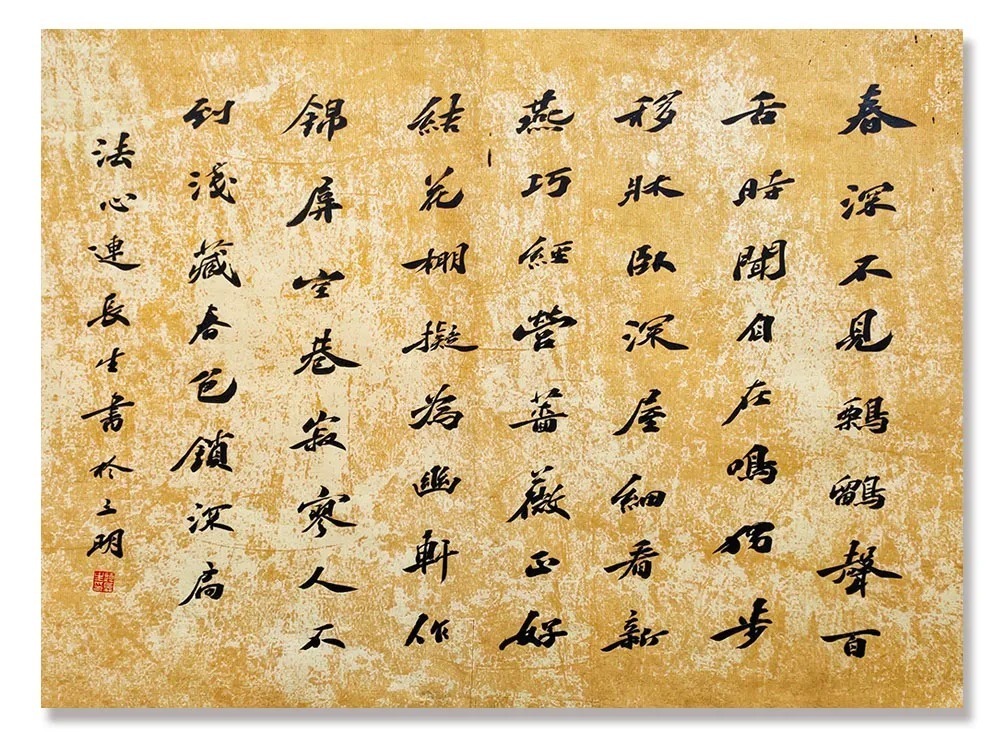 春深不見鶗鶹聲百
舌時聞自在鳴獨步
移牀臥深屋細看新
燕巧經營薔薇正好
結花棚擬為幽軒作
錦屏空巷寂寥人不
到淺藏春色鎖深扃
法心連長生書於三明